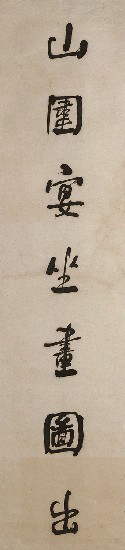 山圍宴坐畫圖出